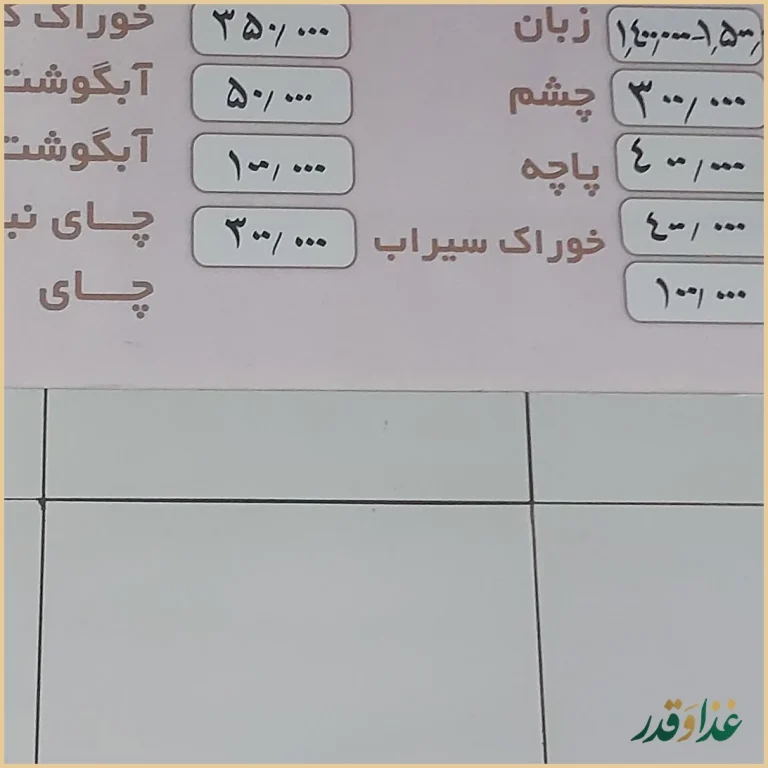 ۱,۴۰۰,۰۰۰-۱,۵۰۰, زبان ۳۵۰/۰۰۰ خوراک
۳۰۰/۰۰۰ چشم ۵۰/۰۰۰ آبگوشت
۴۰۰/۰۰۰ پاچه ۱۰۰/۰۰۰ آبگوشت
۴۰۰/۰۰۰ خوراک سیراب ۳۰۰/۰۰۰ چای
۱۰۰/۰۰۰ چای
غذاوقدر